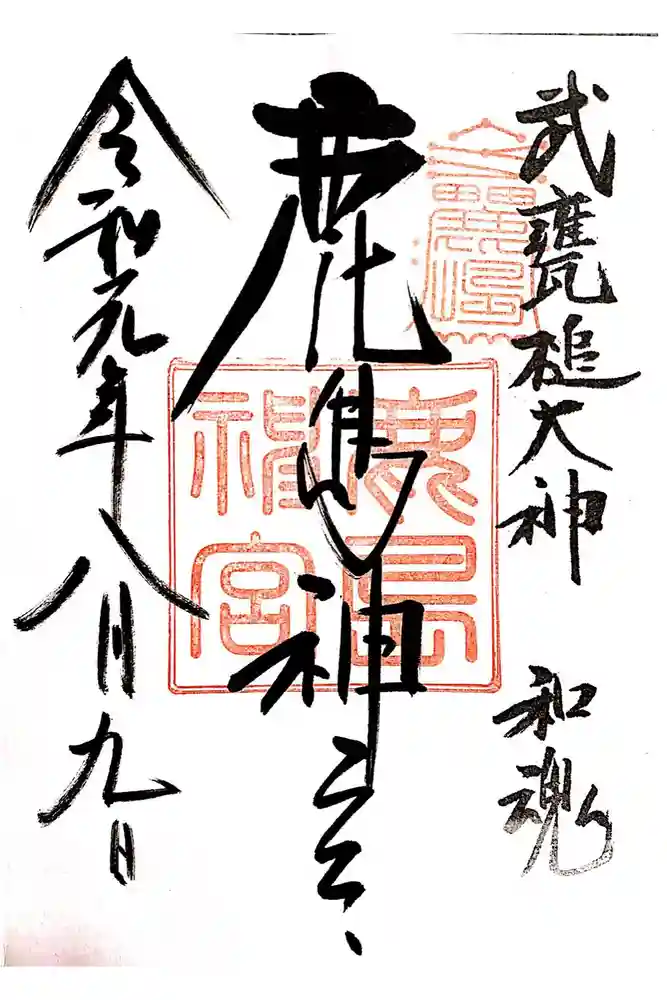 武甕槌大神 和魂
鹿島神宮
鹿島
神宮
令和元年八月九日